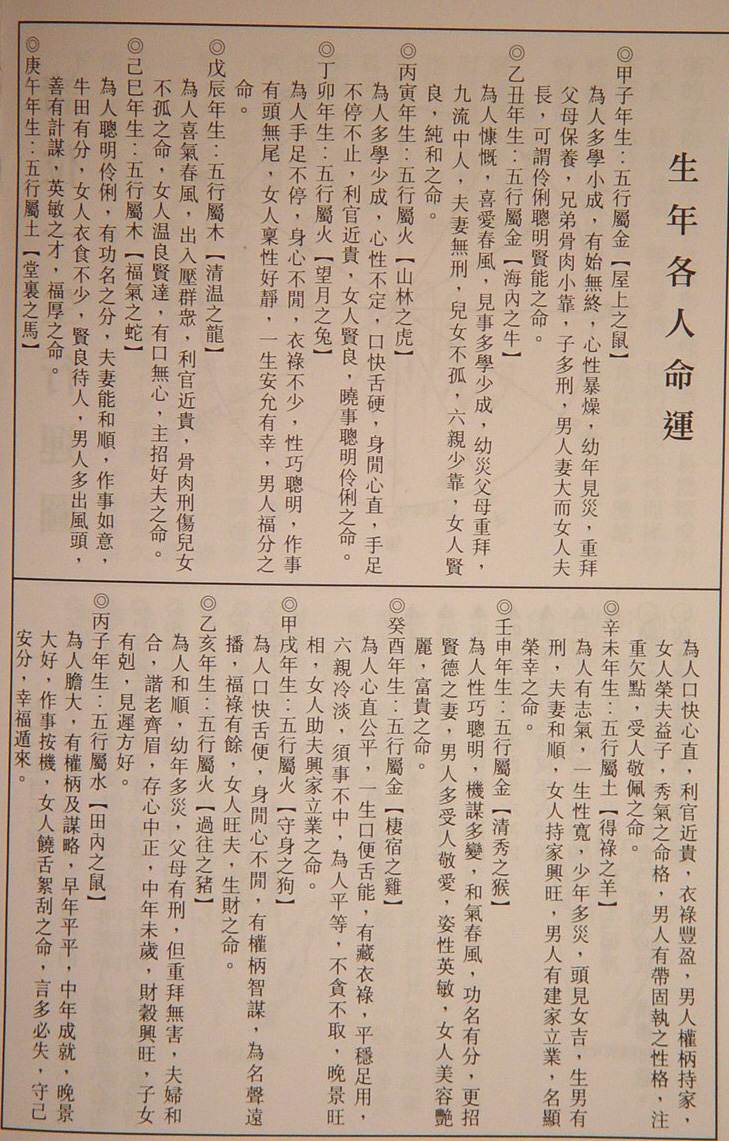 生年各人命運
◎甲子年生：五行屬金【屋上之鼠】
為人多學小成，有始無終，心性暴燥，幼年見災，重拜
父母保養，兄弟骨肉小靠，子多刑，男人妻大而女人夫
長，可謂伶俐聰明賢能之命。
◎乙丑年生：五行屬金【海內之牛】
為人慷慨，喜愛春風，見事多學少成，幼災父母重拜，
九流中人，夫妻無刑，兒女不孤，六親少靠，女人賢
良，純和之命。
◎丙寅年生：五行屬火【山林之虎】
為人多學少成，心性不定，口快舌硬，身閒心直，手足
不停不止，利官近貴，女人賢良，曉事聰明伶俐之命。
◎丁卯年生：五行屬火【望月之兔】
為人手足不停，身心不閒，衣祿不少，性巧聰明，作事
有頭無尾，女人稟性好靜，一生安允有幸，男人福分之
命。
◎戊辰年生：五行屬木【清温之龍】
為人喜氣春風，出入壓群眾，利官近貴，骨肉刑傷兒女
不孤之命，女人温良賢達，有口無心，主招好夫之命。
◎己巳年生：五行屬木【福氣之蛇】
為人聰明伶俐，有功名之分，夫妻能和順，作事如意，
牛田有分，女人衣食不少，賢良待人，男人多出風頭，
善有計謀，英敏之才，福厚之命。
◎庚午年生：五行屬土【堂裏之馬】
為人口快心直，利官近貴，衣祿豐盈，男人權柄持家，
女人榮夫益子，秀氣之命格，男人有帶固執之性格，注
重欠點，受人敬佩之命。
◎辛未年生：五行屬土【得祿之羊】
為人有志氣，一生性寬，少年多災，頭見女吉，生男有
刑，夫妻和順，女人持家興旺，男人有建家立業，名顯
榮幸之命。
◎壬申年生：五行屬金【清秀之猴】
為人性巧聰明，機謀多變，和氣春風，功名有分，更招
賢德之妻，男人多受人敬愛，姿性英敏，女人美容艷
麗，富貴之命。
◎癸酉年生：五行屬金【棲宿之雞】
為人心直公平，一生口便舌能，有藏衣祿，平穩足用，
六親冷淡，須事不中，為人平等，不貪不取，晚景旺
相，女人助夫興家立業之命。
◎甲戌年生：五行屬火【守身之狗】
為人口快舌便，身閒心不閒，有權柄智謀，為名聲遠
播，福祿有餘，女人旺夫，生財之命。
◎乙亥年生：五行屬火【過往之豬】
為人和順，幼年多災，父母有刑，但重拜無害，夫婦和
合，諧老齊眉，存心中正，中年未歲，財穀興旺，子女
有剋，見遲方好。
◎丙子年生：五行屬水【田內之鼠】
為人膽大，有權柄及謀略，早年平平，中年成就，晚景
大好，作事按機，女人饒舌絮刮之命，言多必失，守己
安分，幸福遁來。